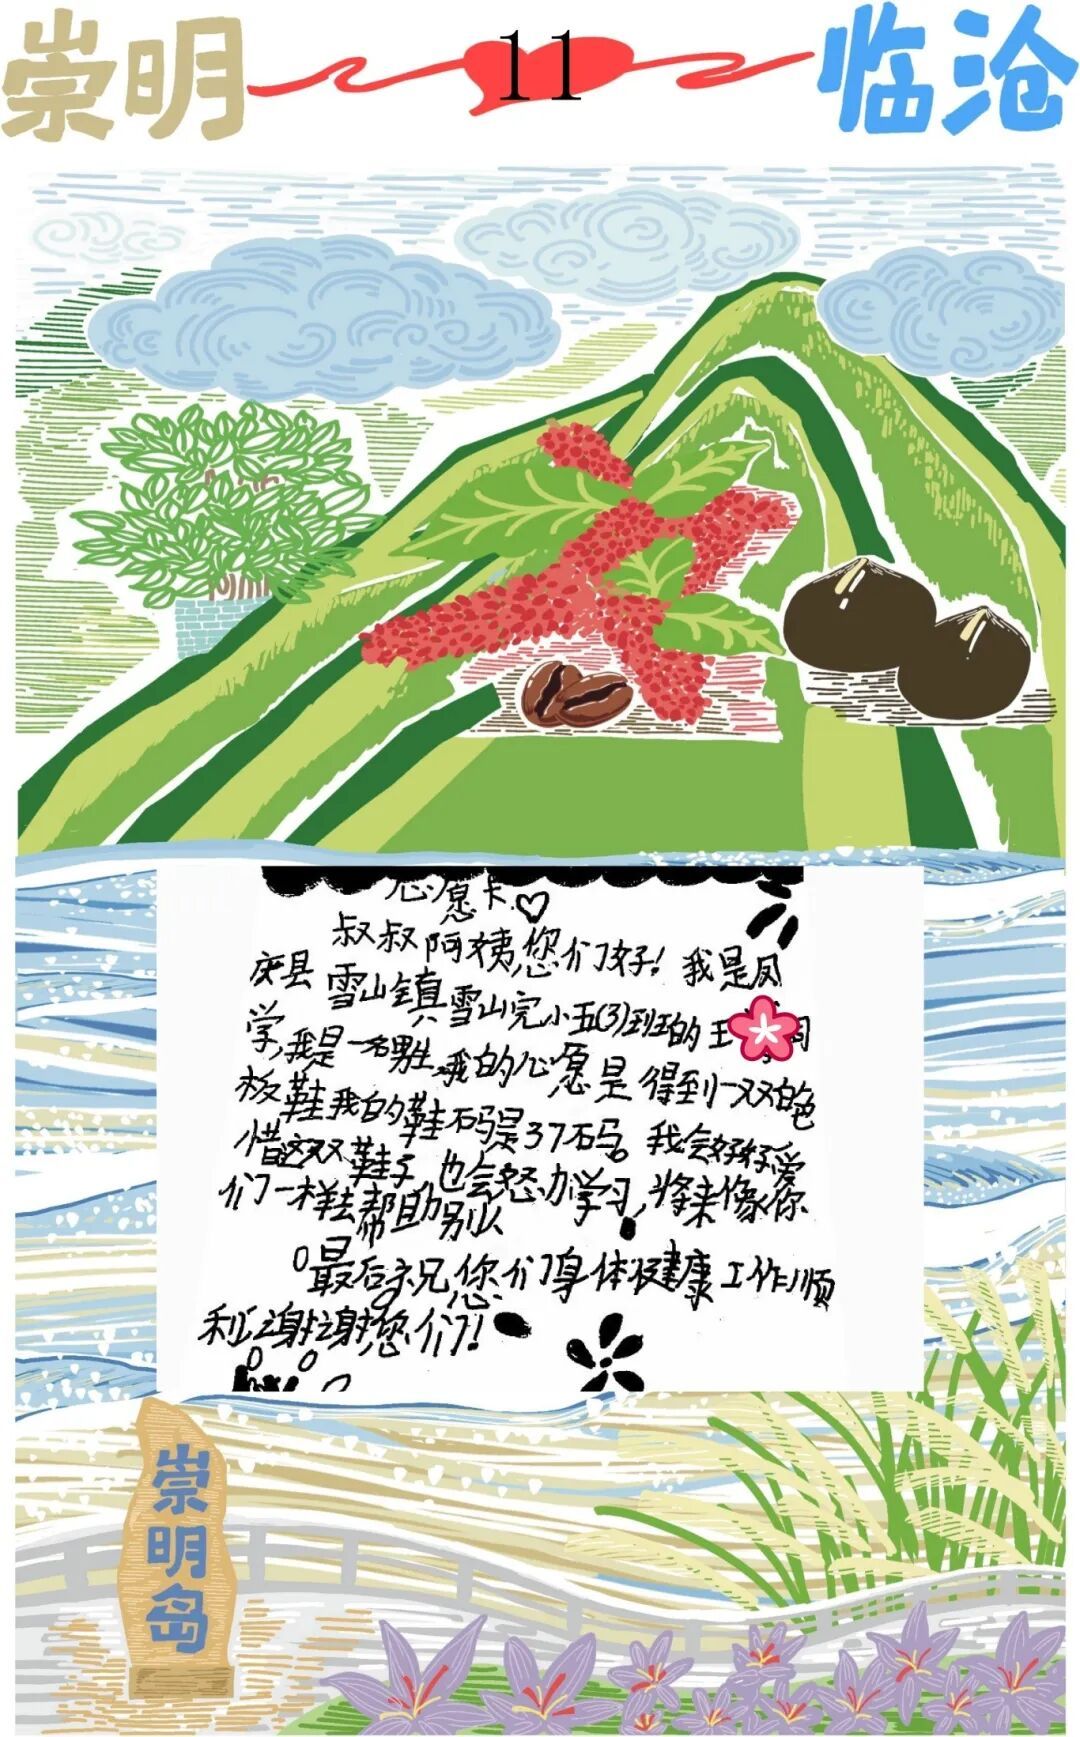 崇明
11
临沧
心愿卡
叔叔阿姨,您们好！我是凤
庆县雪山镇雪山完小五(3)班的王 同
学,我是一名男生,我的心愿是得到一双白色
板鞋我的鞋码是37码。我会好好爱
惜这双鞋子,也会努力学习,将来像你
们一样去帮助别人
最后祝您们身体健康工作顺
利谢谢您们！
崇明岛